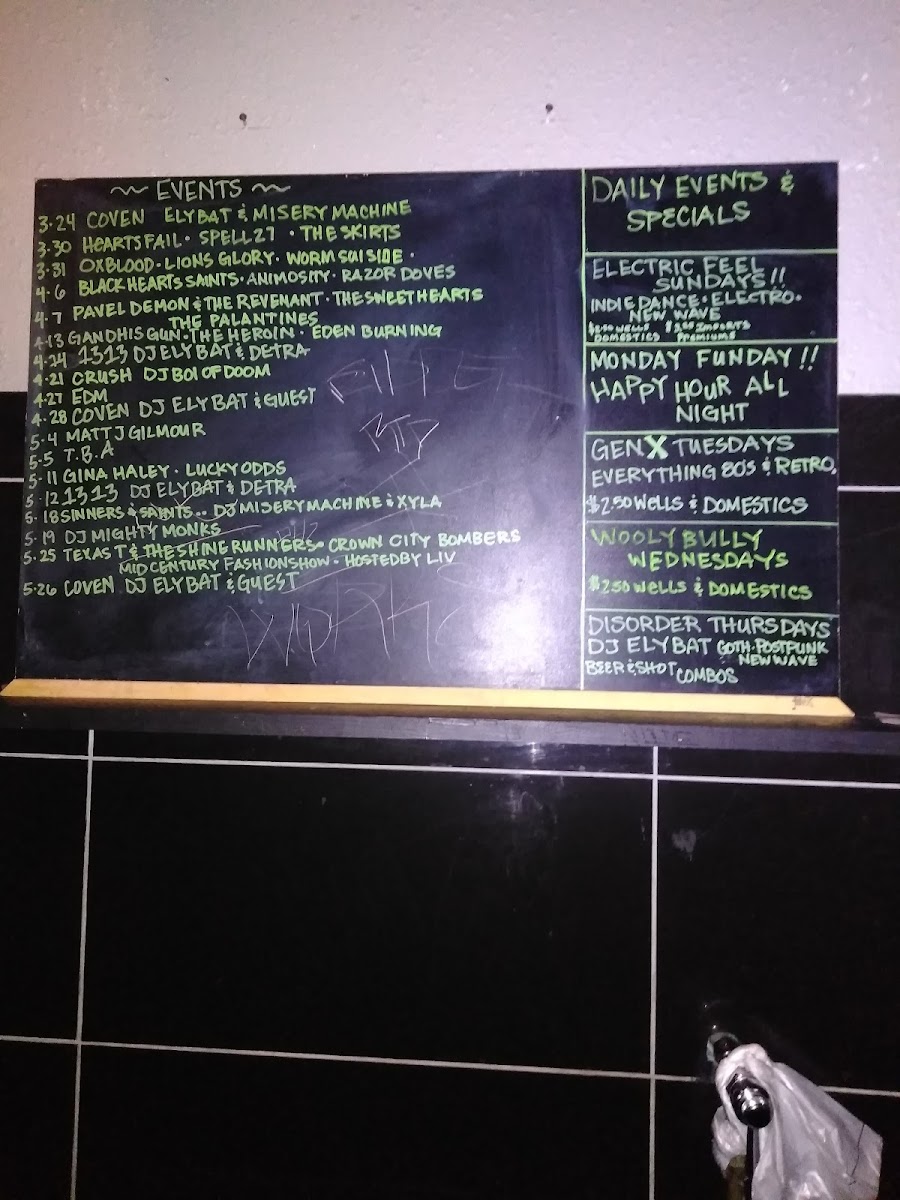 ~ EVENTS ~
3·24 COVEN ELYBAT & MISERY MACHINE
3·30 HEARTSFAIL · SPELL27 · THE SKIRTS
3·31 OXBLOOD · LIONS GLORY · WORM SUISIDE ·
4·6 BLACK HEARTS SAINTS · ANIMOSITY · RAZOR DOVES
4·7 PAVEL DEMON & THE REVENANT · THE SWEETHEARTS
THE PALANTINES
4·13 GANDHIS GUN · THE HEROIN · EDEN BURNING
4·14 1313 DJ ELYBAT & DETRA
4·21 CRUSH DJ BOI OF DOOM
4·27 EDM
4·28 COVEN DJ ELYBAT & GUEST
5·4 MATT J GILMOUR
5·5 T.B.A
5·11 GINA HALEY · LUCKY ODDS
5·12 1313 DJ ELYBAT & DETRA
5·18 SINNERS & SAINTS.. DJ MISERY MACHINE & XYLA
5·19 DJ MIGHTY MONKS
5·25 TEXAS T & THE SHINE RUNNERS · CROWN CITY BOMBERS
MID CENTURY FASHION SHOW - HOSTED BY LIV
5·26 COVEN DJ ELYBAT & GUEST
DAILY EVENTS &
SPECIALS
ELECTRIC FEEL
SUNDAYS!!
INDIE DANCE · ELECTRO ·
NEW WAVE
WELLS IMPORTS
DOMESTICS PREMIUMS
MONDAY FUNDAY!!
HAPPY HOUR ALL
NIGHT
GEN X TUESDAYS
EVERYTHING 80S & RETRO,
$2.50 WELLS & DOMESTICS
WOOLY BULLY
WEDNESDAYS
$2.50 WELLS & DOMESTICS
DISORDER THURSDAYS
DJ ELYBAT GOTH · POSTPUNK
NEW WAVE
BEER & SHOT COMBOS